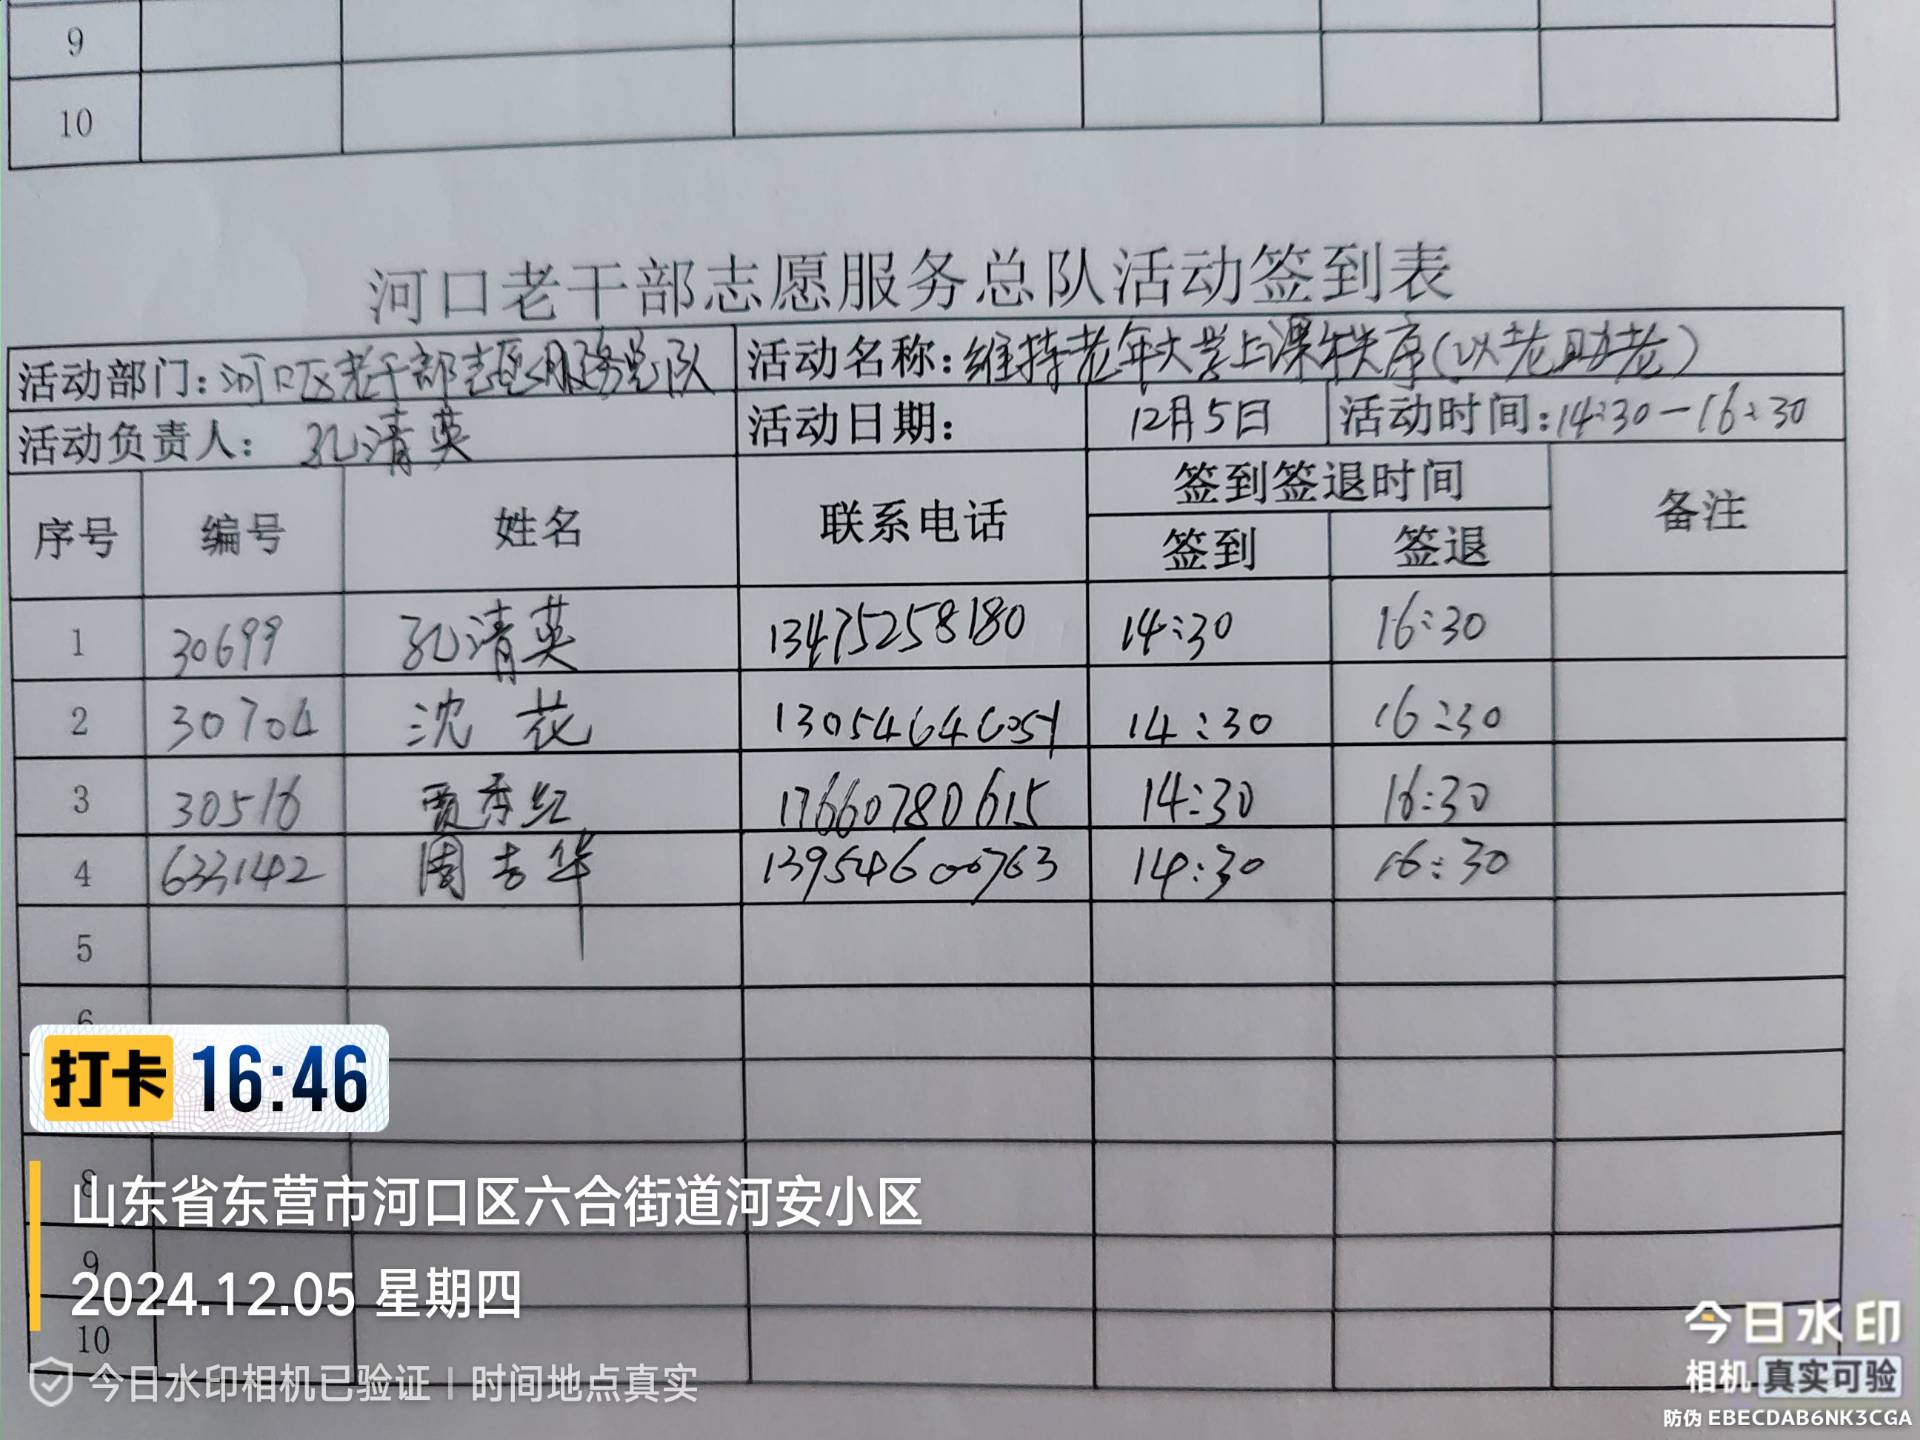 9
10
河口老干部志愿服务总队活动签到表
活动部门：河口区老干部志愿服务总队 活动名称：维持老年大学上课秩序（以老助老）
活动负责人： 孔清英 活动日期： 12月5日 活动时间：14:30—16:30
序号 编号 姓名 联系电话 签到签退时间 备注
签到 签退
1 30699 孔清英 13475258180 14:30 16:30
2 30704 沈花 14:30 16:30
3 30516 贾秀红 17660780615 14:30 16:30
4 633142 周吉华 13954600763 14:30 16:30
5
6
打卡 16:46
8
山东省东营市河口区六合街道河安小区
9
2024.12.05 星期四
10
今日水印相机已验证 | 时间地点真实
今日水印
相机 真实可验
防伪 EBECDAB6NK3CGA